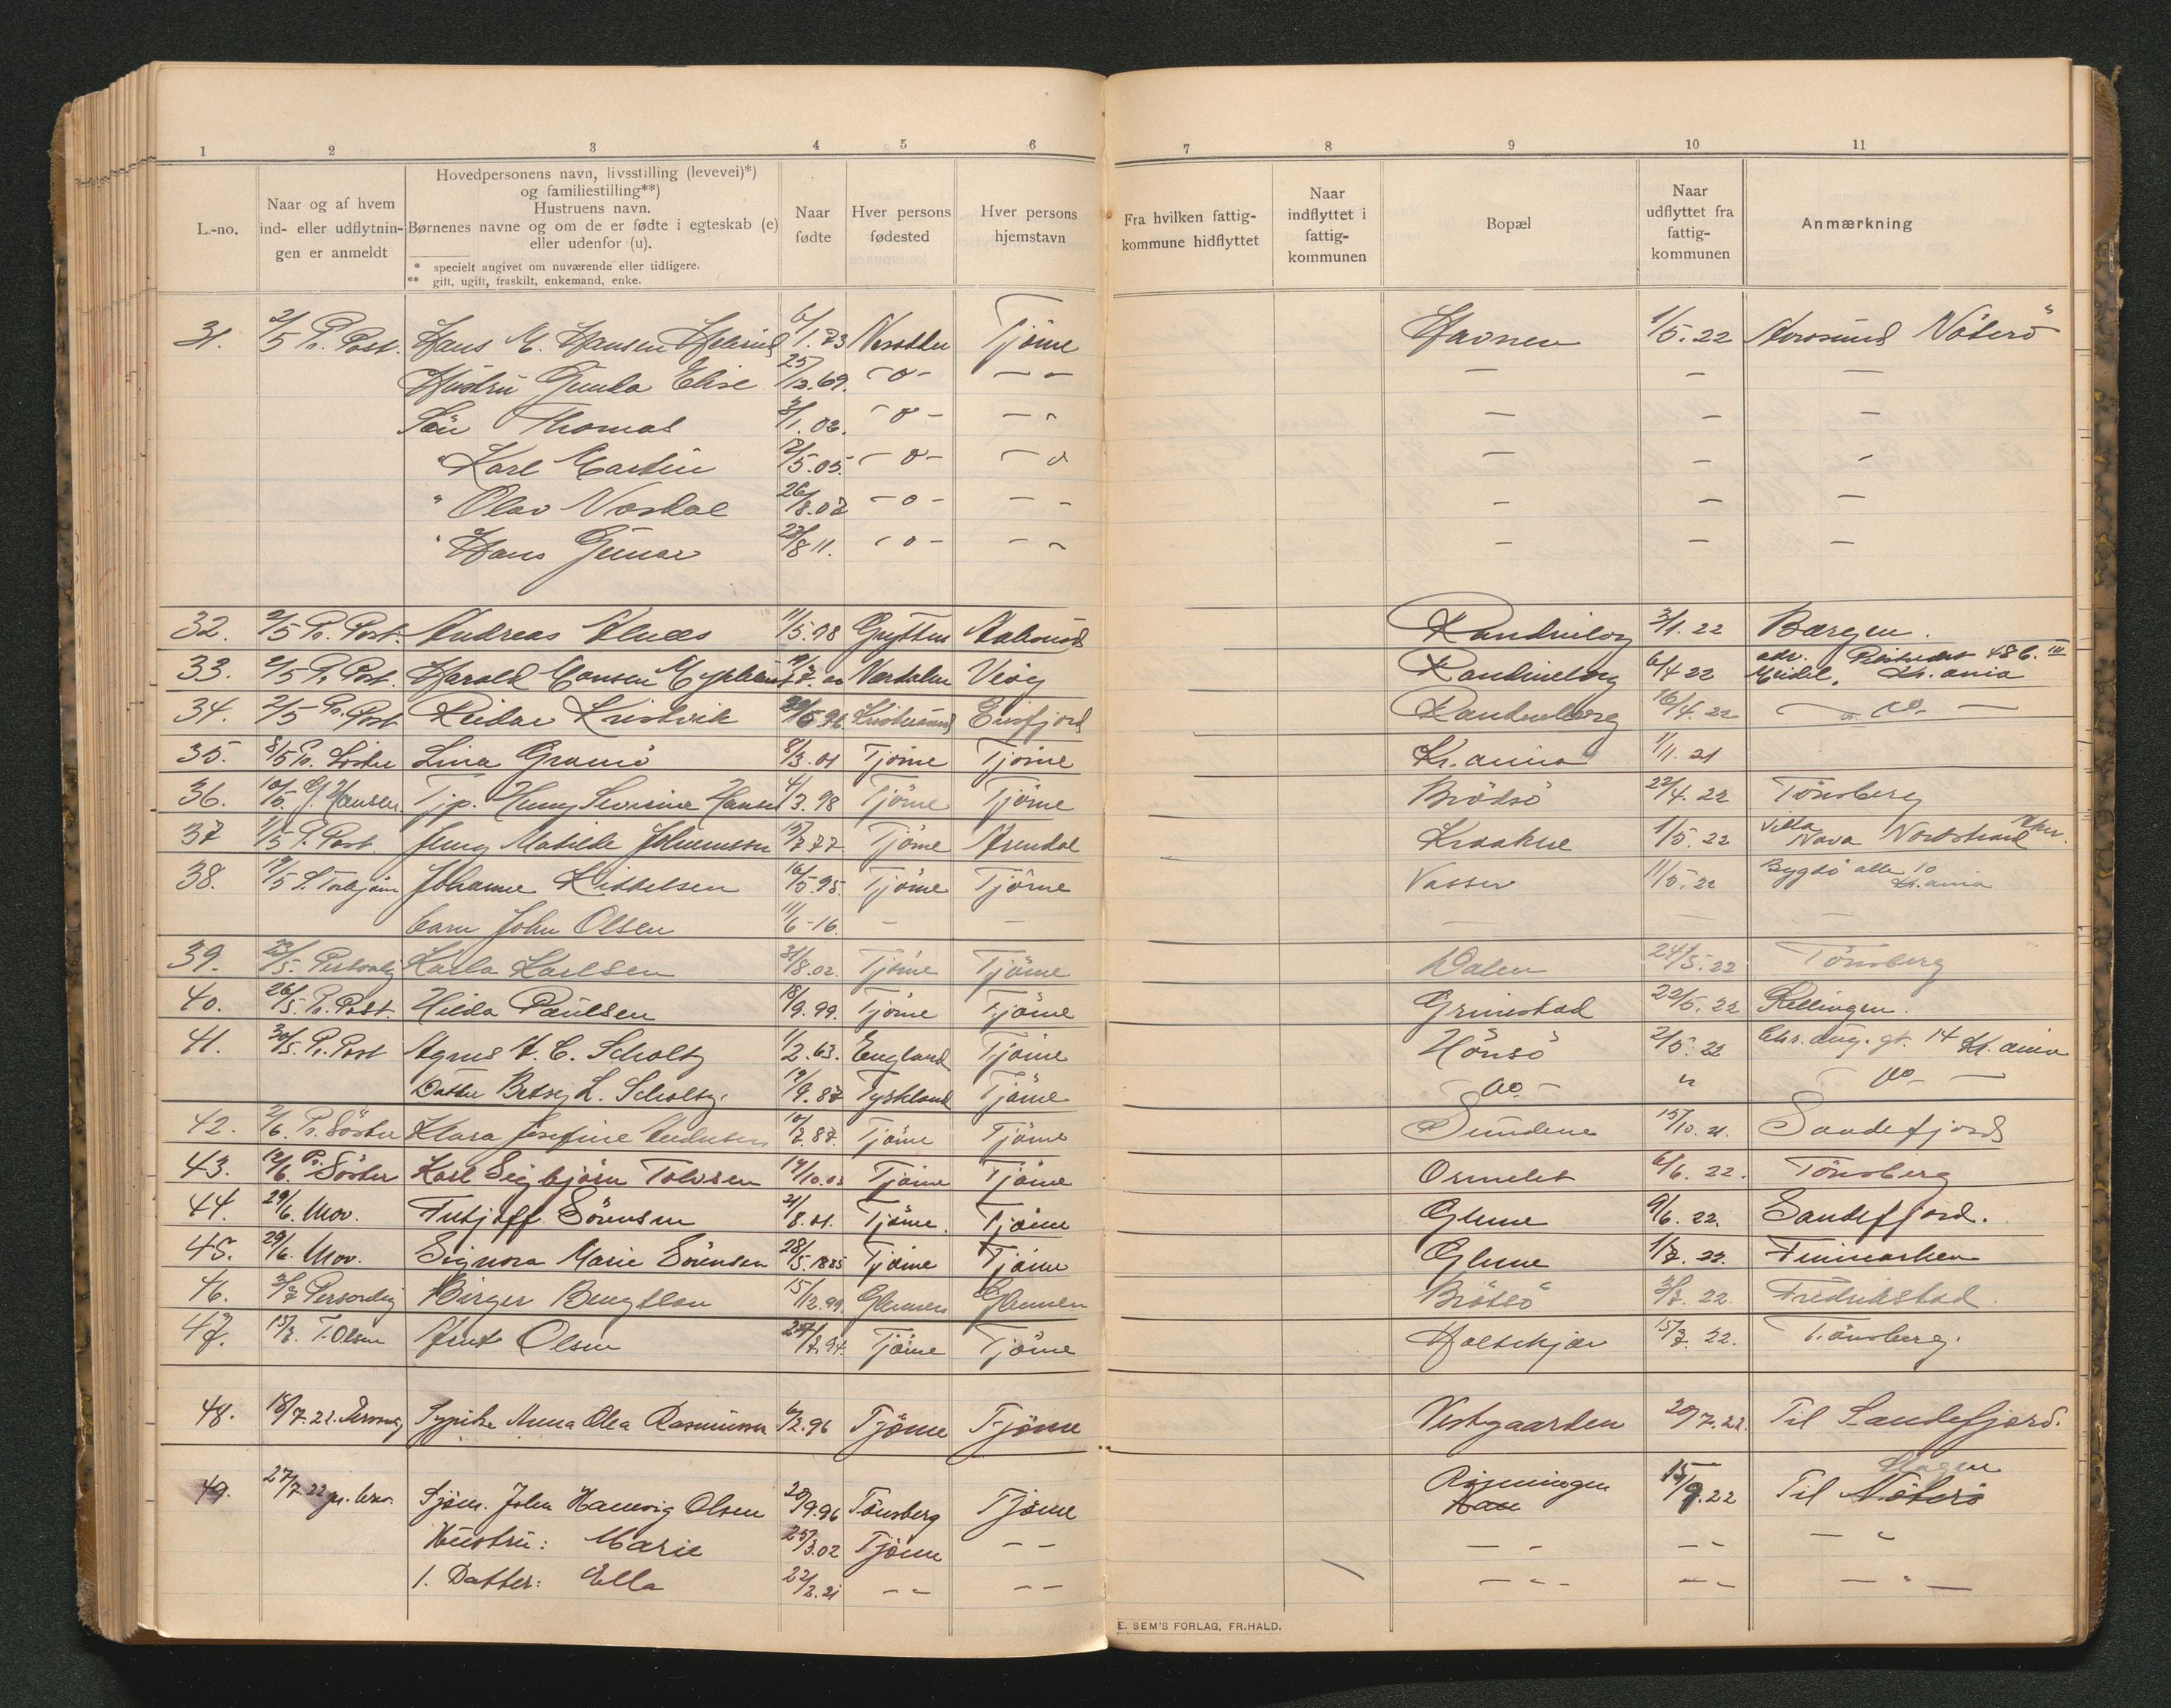 1 2 3 4 5 6 7 8 9 10 11
L.-no.
Naar og af hvem
ind- eller udflytnin-
gen er anmeldt
Hovedpersonens navn, livsstilling (levevei)*)
og familiestilling**)
Hustruens navn.
Børnenes navne og om de er fødte i egteskab (e)
eller udenfor (u).
* specielt angivet om nuværende eller tidligere.
** gift, ugift, fraskilt, enkemand, enke.
Naar
fødte
Hver persons
fødested
Hver persons
hjemstavn
Fra hvilken fattig-
kommune hidflyttet
Naar
indflyttet i
fattig-
kommunen
Bopæl
Naar
udflyttet fra
fattig-
kommunen
Anmærkning
31. 2/5 Pr. Post. Hans M. Hansen 6/1.73 Tjöme Havnen 1/5.22 Nöterö
Hustru Gunda Elise 25/12.69. -o- - -
Sön Thomas 3/1.02. -o- - -
" Karl Martin 12/5.05. -o- - o
" Olav Nordal 26/8.07 -o- - -
" Hans Gunar 23/8 11. -o- - -
32. 2/5 Pr. Post. Andreas 11/5.98 Aalesund Randineborg 3/1.22 Bergen.
33. 2/5 Pr. Post. Harald Hansen Verdalen Randineborg 6/4 22 Kr.ania
34. 2/5 Pr. Post Reidar Kristvik Kristiansund Eidsfjord Randineborg 16/4.22 - do. -
35. 8/5 Pr. Söster Lina Gramö 8/3.01 Tjöme Tjöme Kr.ania 1/1.21
36. 10/5. J. Hansen Tjp. Henny Severine Hansen 4/3.98 Tjöme Tjöme Brödsö 22/4.22 Tönsberg
37 11/5 P. Post. Jenny Matilde Johannessen 15/7 77 Tjöme Arendal Kraakne 1/5.22 Villa Nova Nordstrand
38. 19/5 S. Torbjörn Johanne Kittelsen 16/5.95. Tjöme Tjöme Vasser 11/5.22 Bygdö alle 10 Kr.ania
barn John Olsen 11/6-16. - - - - -
39. 23/5. Personlig Karla Karlsen 31/8.02. Tjöme Tjöme Dalen 24/5.22 Tönsberg
40. 26/5. Pr. Post. Hilda Paulsen 18/9.99. Tjöme Tjöme Grimestad 22/5.22 Rellingen.
41. 30/5. Pr. Post Agnes A. C. Scholtz 1/2.63. England Tjöme Hönsö 2/5.22 Chr. Aug. gt. 14 Kr.ania
Datter Betsy L. Scholtz. 19/9.87 Tyskland Tjöme - do - " - do -
42. 2/6. Pr. Söster Klara Josefine Andersen 10/7.87. Tjöme Tjöme Sundene 15/10.21. Sandefjord
43. 12/6. Pr. Söster Karl Sigbjörn Tolvsen 14/10.03 Tjöme Tjöme Ormelet 6/6.22. Tönsberg
44. 29/6. Mor. Fritjoff Sörensen 21/8.01. Tjöme. Tjöme Glenne 9/6.22. Sandefjord.
45. 29/6. Mor. Signora Marie Sörensen 28/5.1885 Tjöme Tjöme Glenne 1/7.22. Finmarken
46. 3/7 Personlig Birger Bengtson 15/12.99. Glemmen Glemmen Brötsö 3/7.22. Fredrikstad.
47. 15/7. T. Olsen Arnt Olsen 24/7.94. Tjöme Tjöme Holtekjær 15/7.22. Tönsberg.
48. 18/7.22. Personlig Sypike Anna Olea Rasmussen 6/2.96 Tjöme Tjöme Vestgaarden 20/7.22. Til Sandefjord.
49. 27/7 22 pr. brev. Sjöm. John Hannvig Olsen 20/9.96 Tönsberg Tjöme Röjsningen 15/9.22 Til Nöterö
Hustru: Marie 25/3.02 Tjöme - -
1. Datter: Ella 22/2.21 - - - -
E. SEM'S FORLAG, FR.HALD.